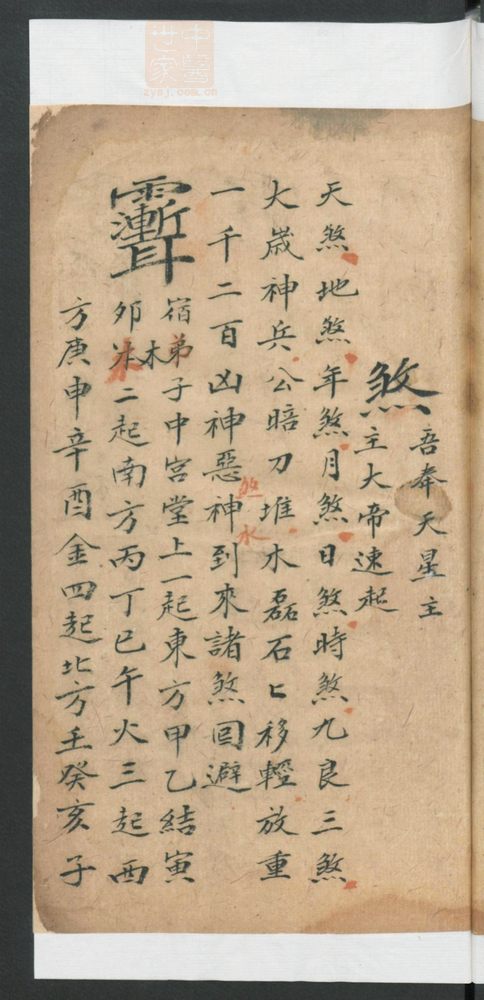 中醫世家
zysj.com.cn
煞
吾奉天星主
主大帝速起
天煞地煞年煞月煞日煞時煞九良三煞
大歲神兵公暗刀堆木磊石匕移輕放重
一千二百凶神惡神到來諸煞回避
煞水
宿弟子中宮堂上一起東方甲乙結寅
夘木二起南方丙丁巳午火三起西
方庚申辛酉金四起北方壬癸亥子